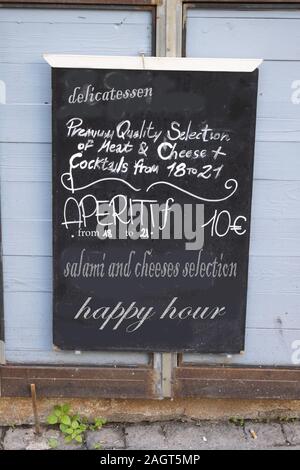 delicatessen
Premium Quality Selection
of Meat & Cheese +
Cocktails from 18 to 21
APERITIf 10€
from 18 to 21.
salami and cheeses selection
happy hour
alamy
Image ID: 2AGT5MP
www.alamy.com